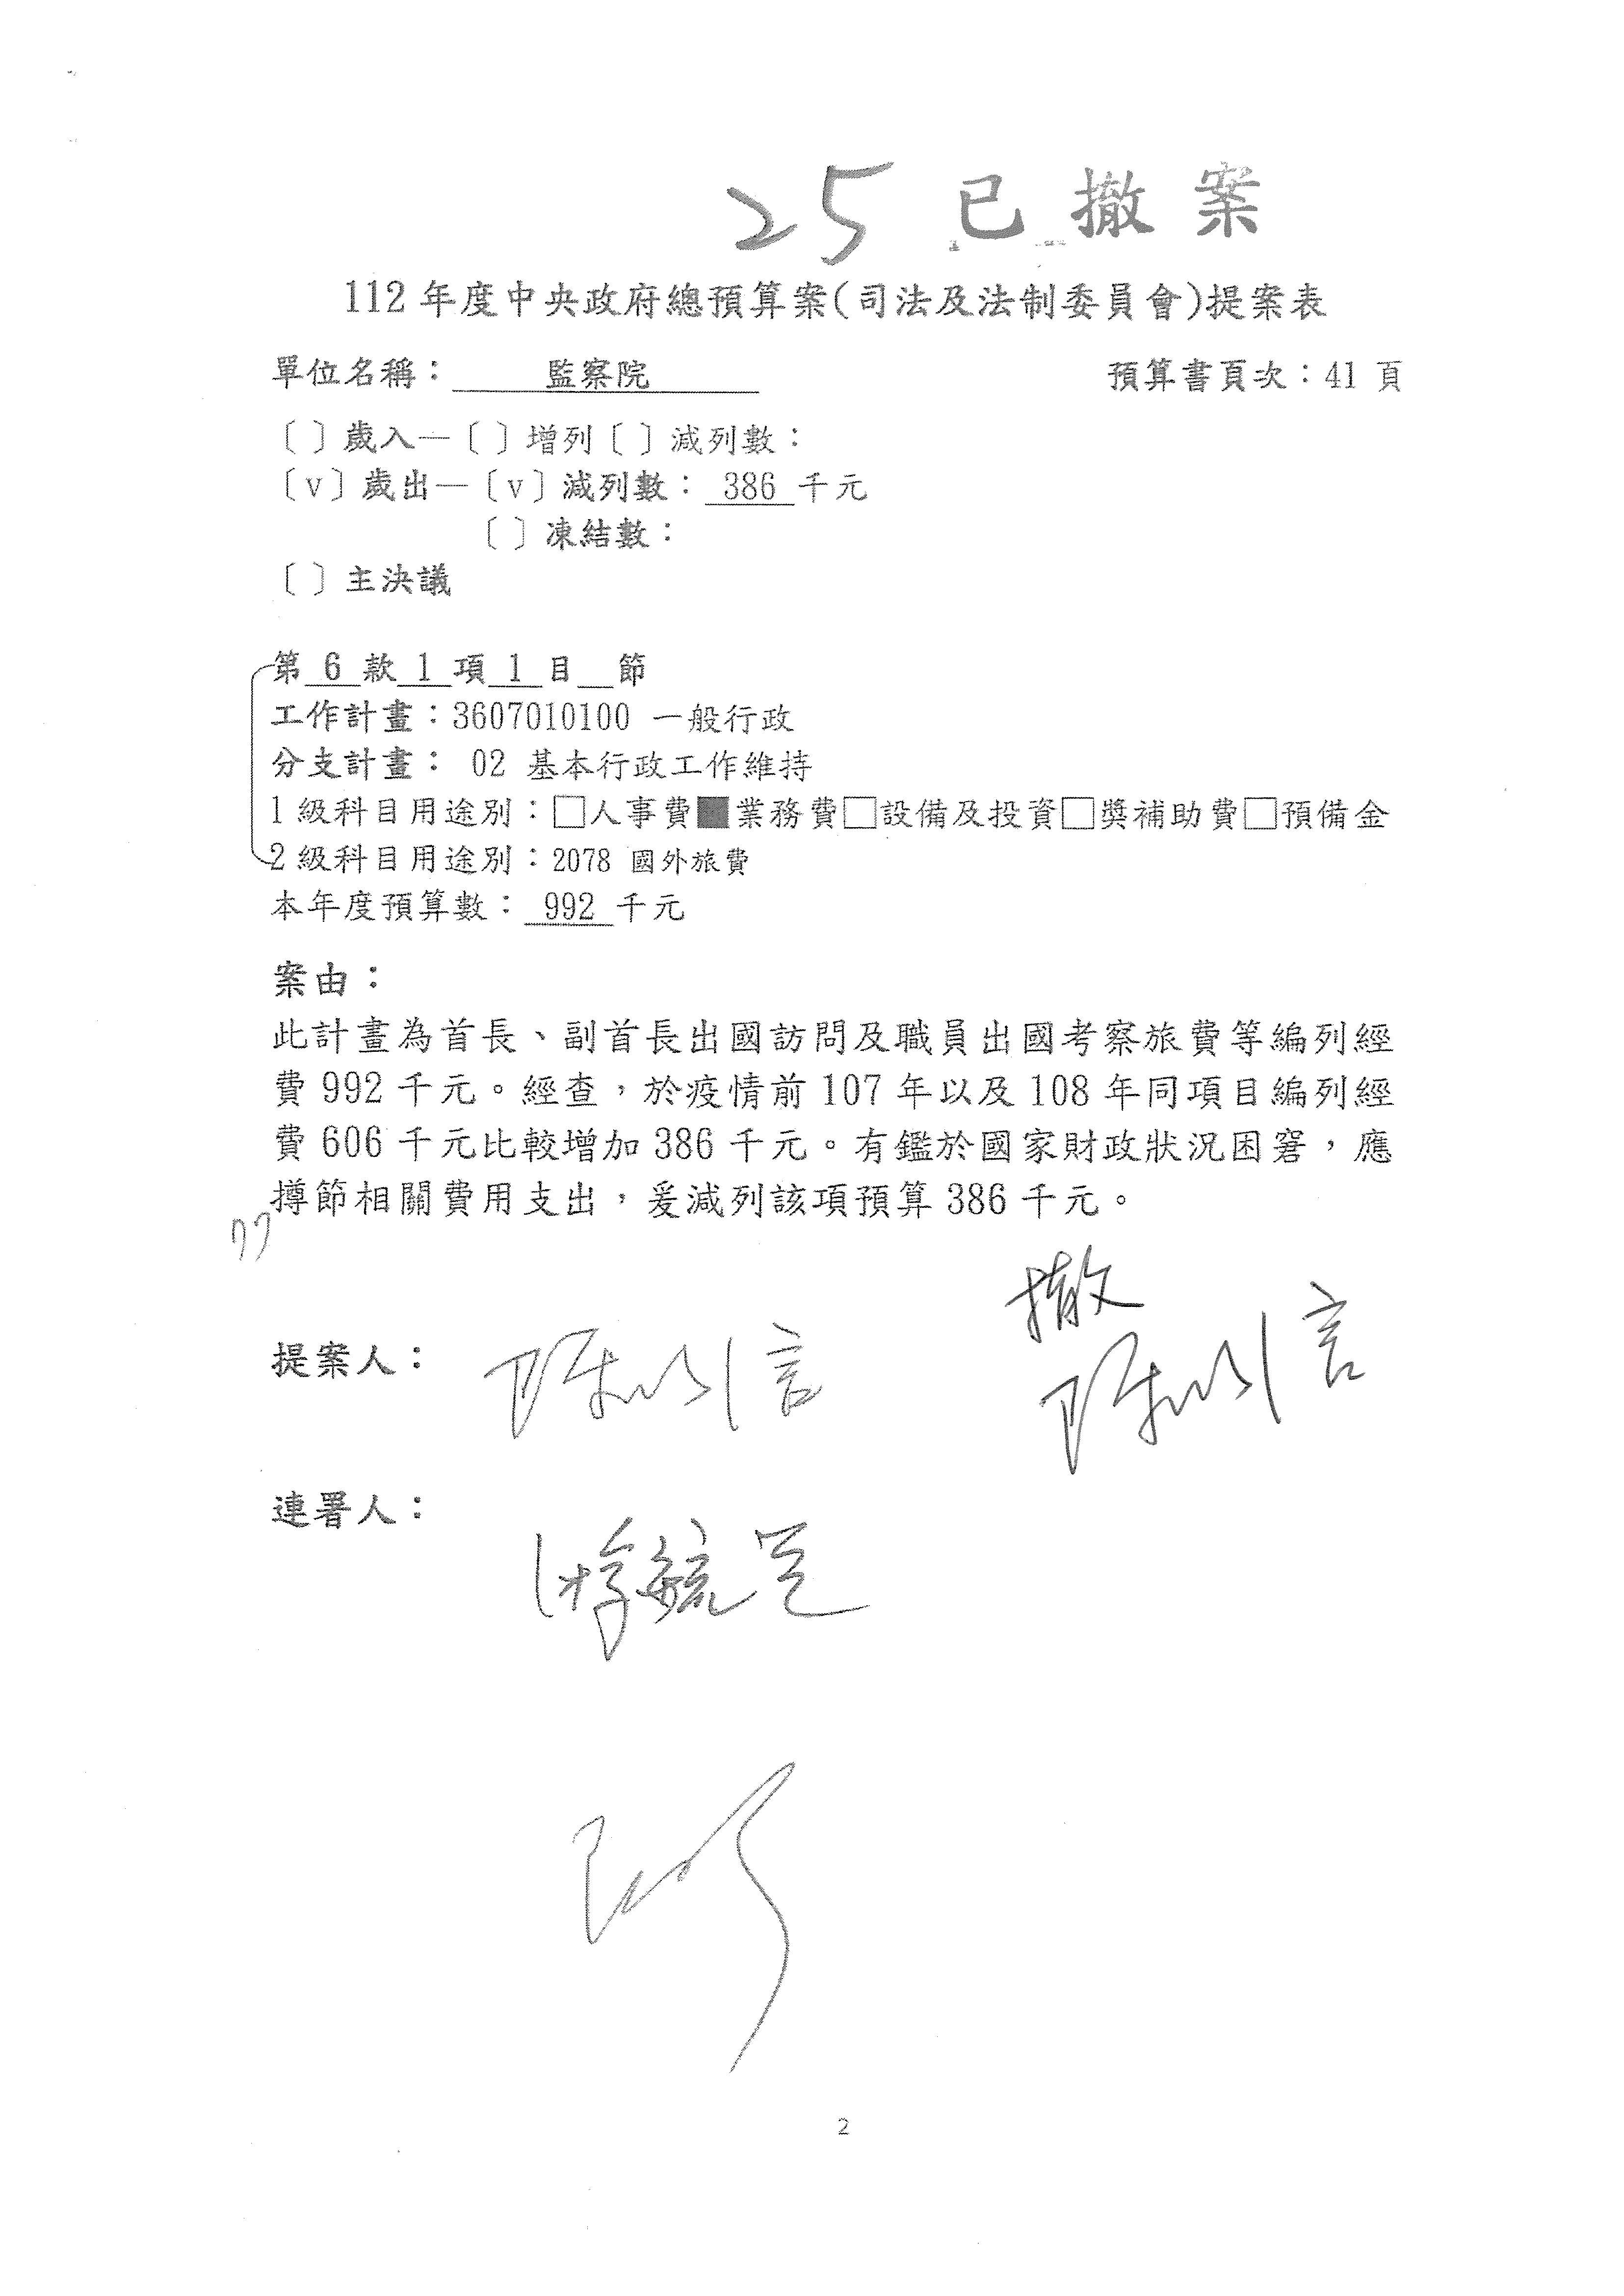 25 已撤案
112年度中央政府總預算案(司法及法制委員會)提案表
單位名稱：監察院 預算書頁次：41 頁
〔 〕歲入—〔 〕增列〔 〕減列數：
〔v〕歲出—〔v〕減列數：386 千元
〔 〕凍結數：
〔 〕主決議
第 6 款 1 項 1 目 節
工作計畫：3607010100 一般行政
分支計畫： 02 基本行政工作維持
1 級科目用途別：□人事費■業務費□設備及投資□獎補助費□預備金
2 級科目用途別：2078 國外旅費
本年度預算數：992 千元
案由：
此計畫為首長、副首長出國訪問及職員出國考察旅費等編列經
費 992 千元。經查，於疫情前 107 年以及 108 年同項目編列經
費 606 千元比較增加 386 千元。有鑑於國家財政狀況困窘，應
撙節相關費用支出，爰減列該項預算 386 千元。
77
撤
提案人：
連署人：
2